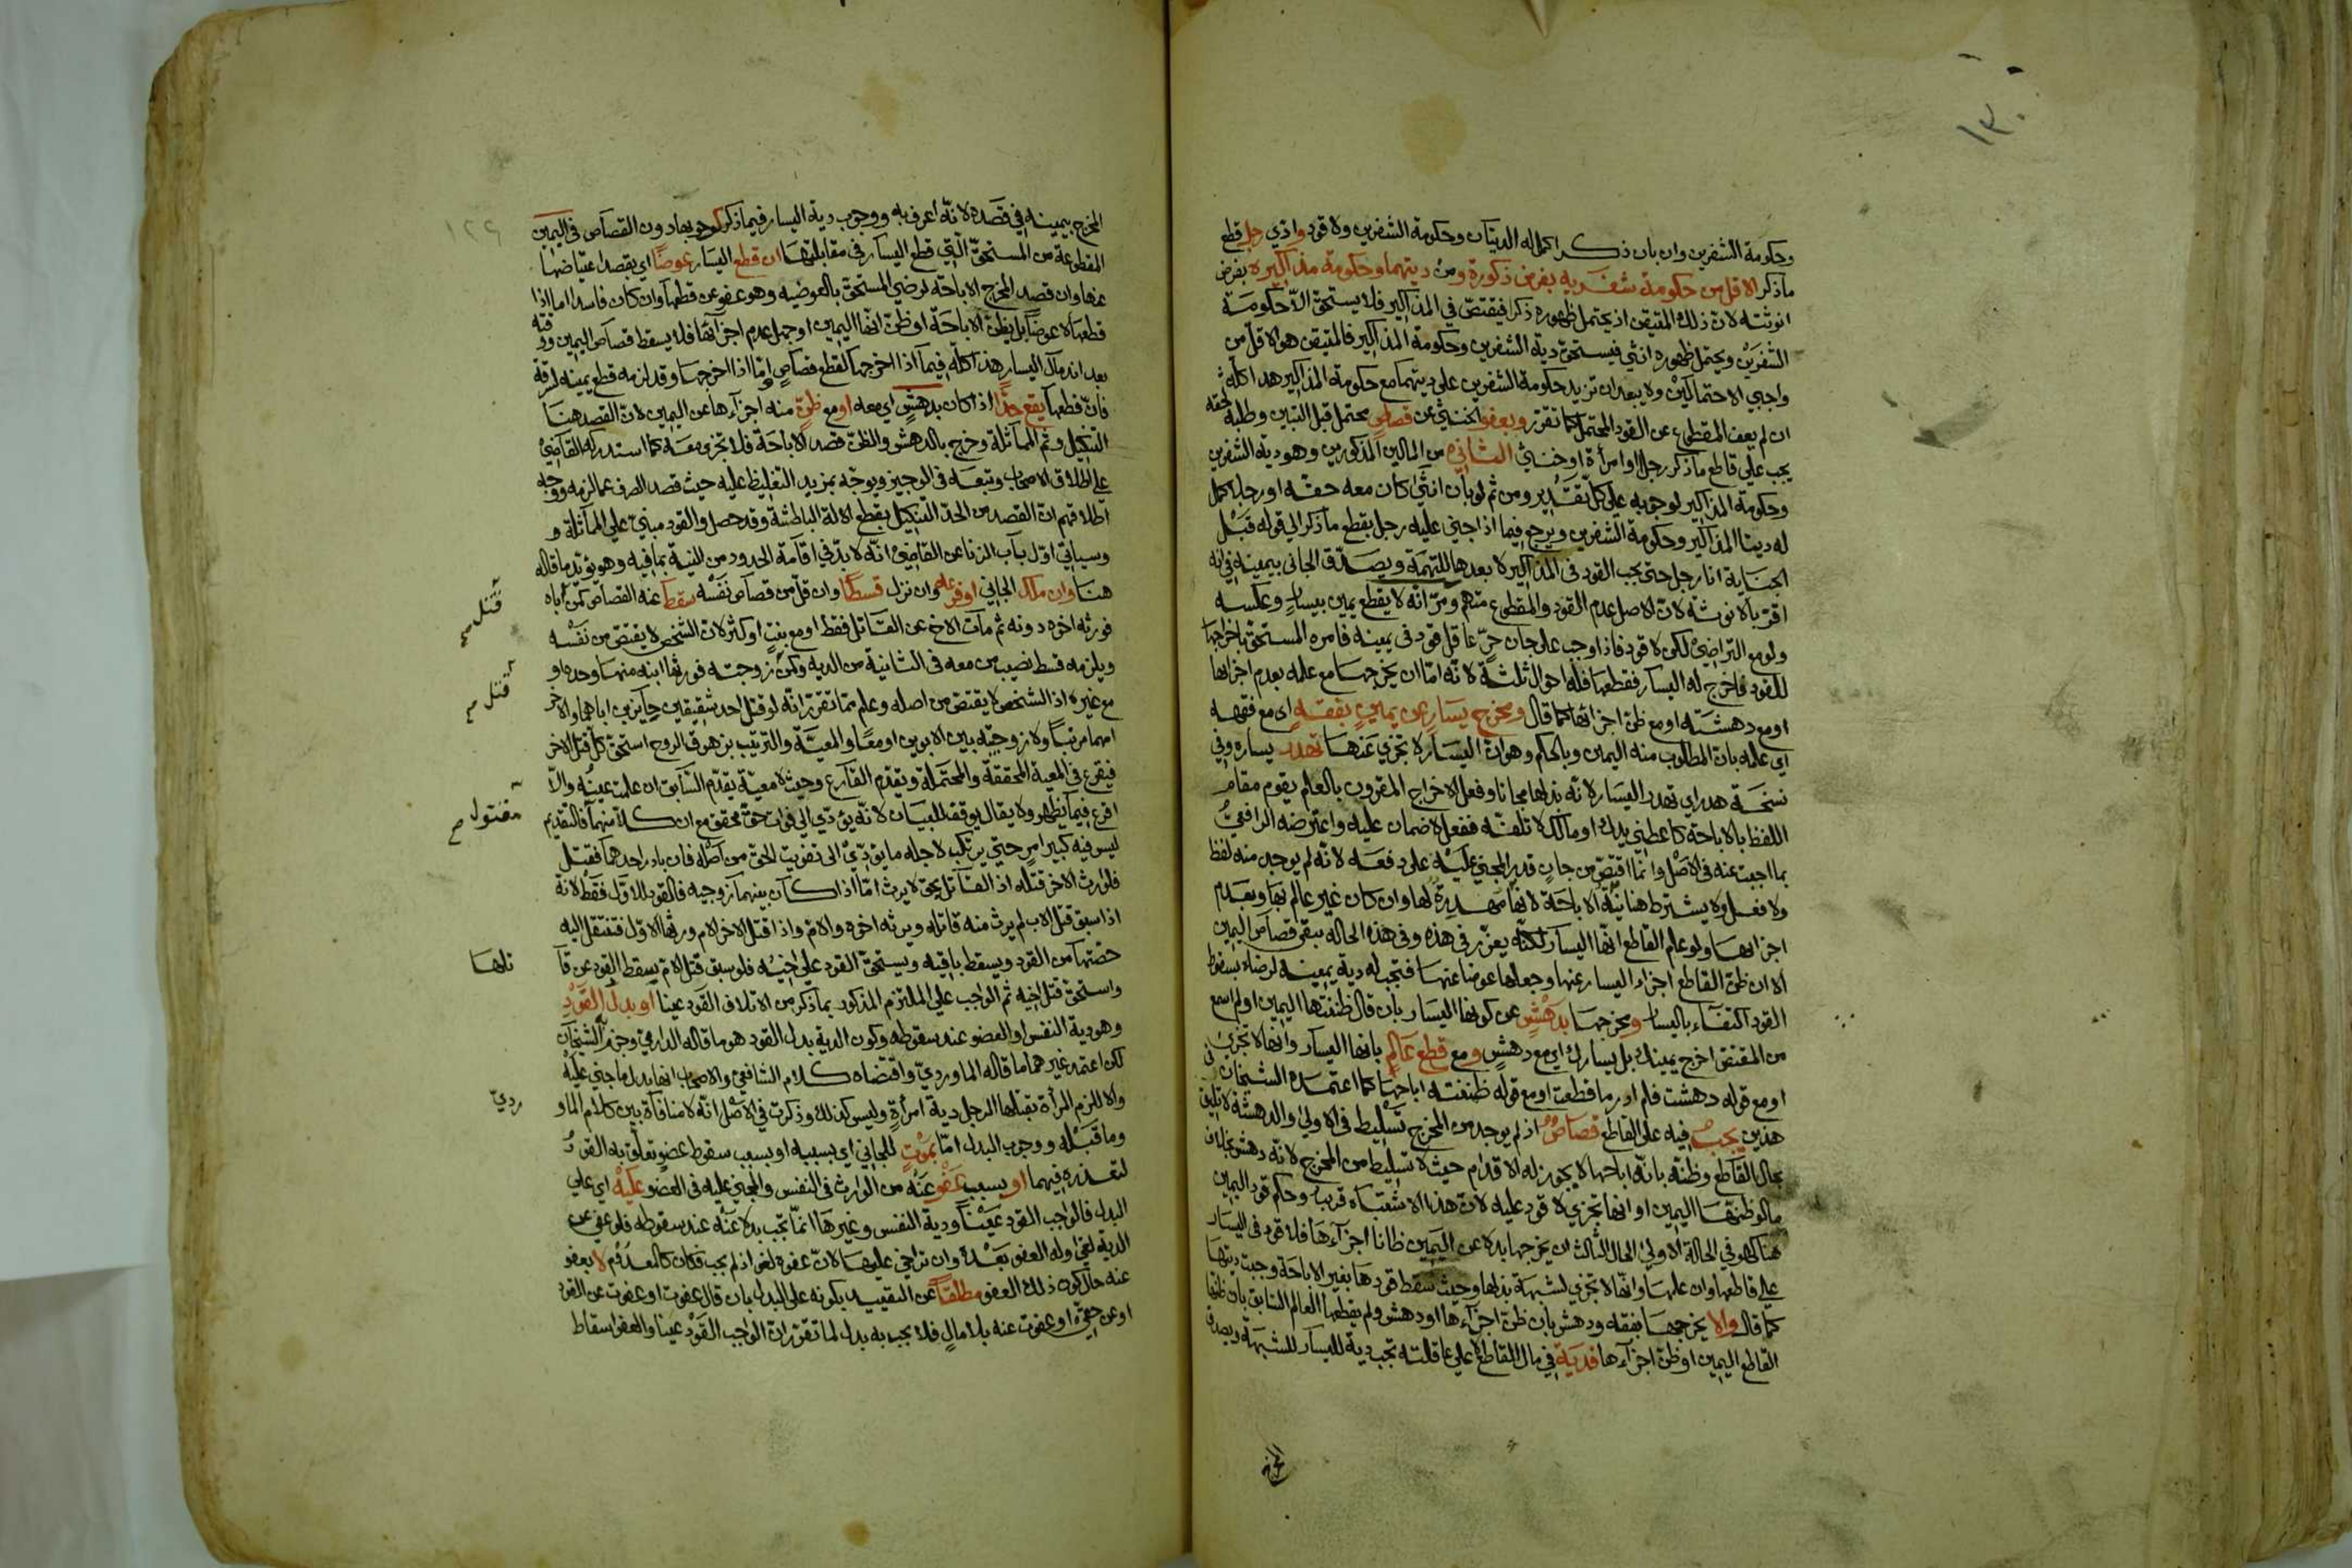 ١٣٠
وحكومة الشفرين وان بان ذكرا كمل له الديتان وحكومة الشفرين ولا قود واذي رجل قطع
ما ذكر الاقل من حكومة شفريه بفرض ذكورة ومن ديتهما وحكومة مذاكيره بفرض
انوثته لان ذلك المتيقن اذ يحتمل ظهوره ذكرا فيقتص في المذاكير فلا يستحق الا حكومة
الشفرين ويحتمل ظهوره انثى فيستحق دية الشفرين وحكومة المذاكير فالمتيقن هو الاقل من
واجبي الاحتمالين ولا يبعد ان تزيد حكومة الشفرين على ديتهما مع حكومة المذاكير هذا كله
ان لم يعف المقطوع عن القود المحتمل كما تقرر وبعفو الخنثى عن قصاص محتمل قبل التبين وطلبه حقه
يجب على قاطع ما ذكر رجلا او امرأة او خنثى الثاني من المالين المذكورين وهو دية الشفرين
وحكومة المذاكير لوجوبه على كل تقدير ومن ثم لو بان انثى كان معه حقه او رجلا كمل
له ديتا المذاكير وحكومة الشفرين ويرجع فيما اذا جنى عليه رجل بقطع ما ذكر الى قوله قبل
الجناية انا رجل حتى يجب القود في المذاكير لا بعدها للتهمة ويصدق الجاني بيمينه في انه
اقر بالانوثة لان الاصل عدم القود والمقطوع متهم ومر انه لا يقطع يمين بيسار وعكسه
ولو مع التراضي لكن لا قود فاذا وجب على جان حر عاقل قود في يمينه فامره المستحق باخراجها
للقود فاخرج له اليسار فقطعها فله احوال ثلثة لانه اما ان يخرجها مع علمه بعدم اجزائها
او مع دهشته او مع ظن اجزائها كما قال ومخرج يسار عن يمين بفقه اي مع فقهه
اي علمه بان المطلوب منه اليمين وبالحكم وهو ان اليسار لا تجزي عنها تهدر يساره وفي
نسخة هدر اي تهدر اليسار لانه بذلها مجانا وفعل الاخراج المقرون بالعلم يقوم مقام
اللفظ بالاباحة كاعطني يدك او مالك لاتلفه ففعل لا ضمان عليه واعترضه الرافعي
بما اجبت عنه في الاصل وانما اقتص من جان قدر المجني عليه على دفعه لانه لم يوجد منه لفظ
ولا فعل ولا يشترط هنا نية الاباحة لانها مهدرة لها وان كان غير عالم بها وبعدم
اجزائها ولو علم القاطع انها اليسار لكنه يعزر في هذه وفي هذه الحالة يبقى قصاص اليمين
الا ان ظن القاطع اجزاء اليسار عنها وجعلها عوضا عنها فتجب له دية يمينه لرضاه بسقوط
القود اكتفاء باليسار ومخرجها بدهش عن كونها اليسار بان قال ظننتها اليمين او لم اسمع
من المقتص اخرج يمينك بل يسارك اي مع دهش ومع قطع عالم بانها اليسار وانها لا تجزي
او مع قوله دهشت فلم ادر ما قطعت او مع قوله ظننته اباحها كما اعتمده الشيخان في
هذين يجب فيه على القاطع قصاص اذ لم يوجد من المخرج تسليط في الاولى والدهشة لا تليق
بحال القاطع وظنه بانه اباحها لا يجوز له الاقدام حيث لا تسليط من المخرج لانه دهش بخلاف
ما لو ظنها اليمين او انها تجزي لا قود عليه لان هذا الاشتباه قريب وحكم قود اليمين
هنا كهو في الحالة الاولى الحال الثالث ان يخرجها بدلا عن اليمين ظانا اجزاءها فلا قود في اليسار
على قاطعها وان علمها وانها لا تجزي لشبهة بذلها وحيث سقط قودها بغير الاباحة وجبت ديتها
كما قال والا يخرجها بفقه ودهش بان ظن اجزاءها او دهش ولم يقطعها العالم السابق بان ظنها
القاطع اليمين او ظن اجزاءها فدية في مال القاطع لا على عاقلته تجب دية لليسار للشبهة ويصدق
المخرج
١٢٩
المخرج بيمينه في قصده لانه اعرف به ووجوب دية اليسار فيما ذكر كوجوبها دون القصاص في اليمين
المقطوعة من المستحق التي قطع اليسار في مقابلتها ان قطع اليسار عوضا اي بقصد اعتياضها
عنها وان قصد المخرج الاباحة لرضى المستحق بالعوضية وهو عفو عن قطعها وان كان فاسدا اما اذا
قطعها لا عوضا بل بظن الاباحة او ظن انها اليمين او جهل عدم اجزائها فلا يسقط قصاص اليمين ووقته
بعد اندمال اليسار هذا كله فيما اذا اخرجها لقطع قصاص واما اذا اخرجها وقد لزمه قطع يمينه لسرقة
فان قطعها يقع حدا اذا كان بدهش اي معه او مع ظن منه اجزاءها عن اليمين لان القصد هنا
التنكيل وثم المماثلة وخرج بالدهش والظن قصد الاباحة فلا تجزي معه كما استدركه القاضي
على اطلاق الاصحاب وتبعه في الوجيز ويوجه بمزيد التغليظ عليه حيث قصد الصرف عما لزمه ووجه
اطلاقهم ان القصد من الحد التنكيل بقطع الالة الباطشة وقد حصل والقود مبني على المماثلة و
وسياتي اول باب الزنا عن القاضي انه لا بد في اقامة الحدود من النية بما فيه وهو يؤيد ما قاله
هنا وان ملك الجاني او فرعه وان نزل قسطا وان قل من قصاص نفسه سقط عنه القصاص كمن اباه
فورثه اخوه دونه ثم مات الاخ عن القاتل فقط او مع بنت او كثر لان الشخص لا يقتص من نفسه
ويلزمه قسط نصيب من معه في الثانية من الدية وكمن زوجته فورثها ابنه منها وحده او
مع غيره اذ الشخص لا يقتص من اصله وعلم مما تقرر انه لو قتل احد شقيقين حائزين اباهما والاخر
امهما مرتبا ولا زوجية بين الابوين او معا والمعية والترتيب بزهوق الروح استحق كل قتل الاخر
فيقرع في المعية المحققة والمحتملة ويقدم القارع وحيث لا معية يقدم السابق ان علمت عينه والا
اقرع فيما يظهر ولا يقال يوقف للبيان لانه يؤدي الى فوات حق محقق مع ان كلا منهما فالتقديم
ليس فيه كبير امر حتى يرتكب لاجله ما يؤدي الى تفويت الحق من اصله فان بادر احدهما فقتل
فلوارث الاخر قتله اذ القاتل بحق لا يرث اما اذا كان بينهما زوجية فالقود للاول فقط لانه
اذا سبق قتل الاب لم يرث منه قاتله ويرثه اخوه والام واذا قتل الاخر الام ورثها الاول فتنتقل اليه
حصتها من القود ويسقط باقيه ويستحق القود على اخيه فلو سبق قتل الام يسقط القود عن قا
واستحق قتل اخيه ثم الواجب على الملتزم المذكور بما ذكر من الاتلاف القود عينا او بدل القود
وهو دية النفس او العضو عند سقوطه وكون الدية بدل القود هو ما قاله الدارمي وجزم به الشيخان
لكن اعتمد غيرهما ما قاله الماوردي واقتضاه كلام الشافعي والاصحاب انها بدل ما جني عليه
والا للزم المرأة بقتلها الرجل دية امرأة وليس كذلك وذكرت في الاصل انه لا منافاة بين كلام الماو
وما قبله ووجوب البدل اما بموت للجاني اي بسببه او بسبب سقوط عضو تعلق به القود
لتعذره فيهما او بسبب عفو عنه من الوارث في النفس والمجني عليه في العضو عليه اي على
البدل فالواجب القود عينا ودية النفس وغيرها انما تجب بدلا عنه عند سقوطه فلو عفى عن
الدية لغى وله العفو بعد وان تراخى عليها لان عفوه لغو اذ لم يجب فكان كالمعدوم لا بعفو
عنه حال كون ذلك العفو مطلقا عن التقييد بكونه على البدل بان قال عفوت او عفوت عن القود
او عن حقي او عفوت عنه بلا مال فلا يجب به بدل لما تقرر ان الواجب القود عينا والعفو اسقاط
قتل صح
قتل صح
مقتول صح
تلها
ردي